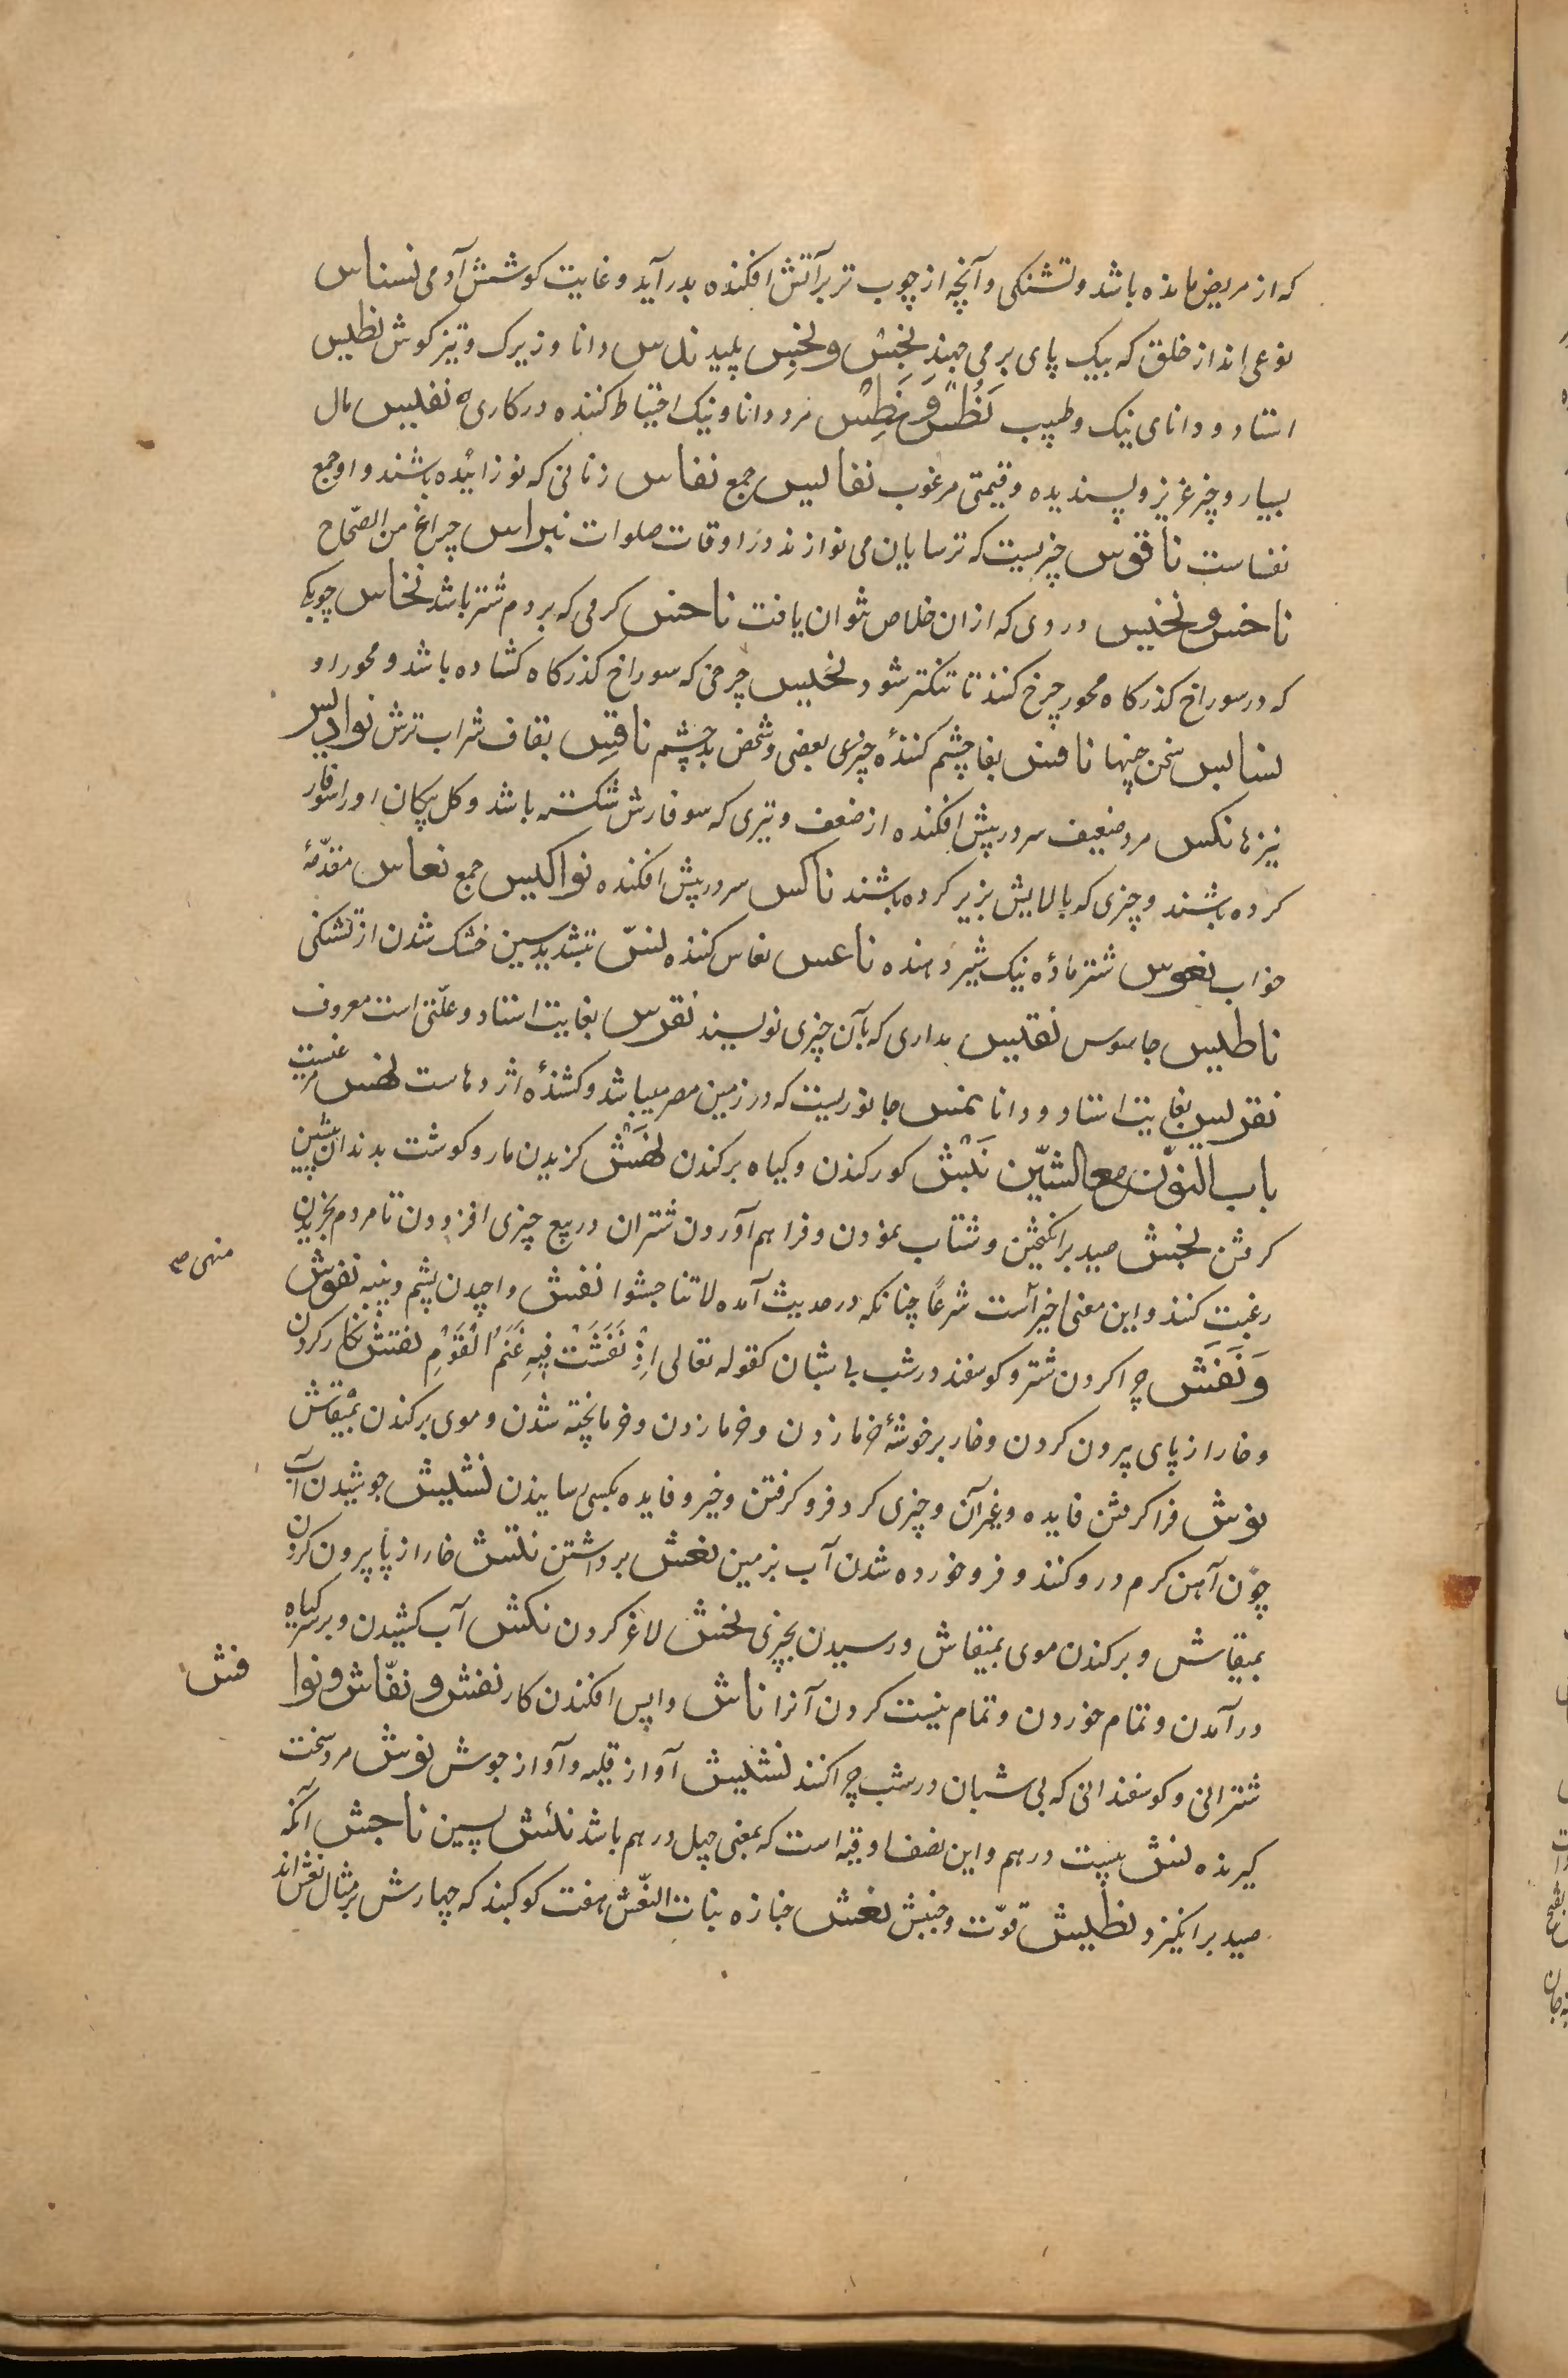 که از مریض مانده باشد و تشنکی و آنچه از چوب تر بر آتش افکنده بدر آید و غایت کوشش آدمی نسناس
نوعی اند از خلق که بیک پای بر می جهند نجس و نجس پلید ندس دانا و زیرک و تیز کوش نطیس
استاد و دانای نیک و طبیب نطس و نطس مرد دانا و نیک احتیاط کننده در کاری نفیس مال
بسیار و چیز عزیز و پسندیده و قیمتی مرغوب نفایس جمع نفاس زنانی که نوزائیده باشند و او جمع
نفساست ناقوس چیزیست که ترسایان می نوازند در اوقات صلوات نبراس چراغ من الصّحاح
ناخس و نخیس دردی که ازان خلاص نتوان یافت ناخس کرمی که بر دم شتر باشد نخاس چوبکی
که در سوراخ کذرکاه محور چرخ کنند تا تنکتر شود نخیس چرخی که سوراخ کذرکاه کشاده باشد و محور او
نسایس سخن چینها نافس بفا چشم کنندهٔ چیزی بعضی و شخص بد چشم ناقس بقاف شراب ترش نوادیس
نیزها نکس مرد ضعیف سر در پیش افکنده از ضعف و تیری که سوفارش شکسته باشد و کل پیکان او را سوفار
کرده باشند و چیزی که بالایش بزیر کرده باشند ناکس سر در پیش افکنده نواکیس جمع نعاس مقدّمهٔ
خواب نعوس شتر مادهٔ نیک شیر دهنده ناعس نعاس کننده نسّ بتشدید سین خشک شدن از تشنکی
ناطیس جاسوس نقیس مدادی که بآن چیزی نویسند نقرس بغایت استاد و علّتی است معروف
نقریس بغایت استاد و دانا نمس جانوریست که در زمین مصر میباشد و کشندهٔ اژدهاست نهس مرغیست
باب النّون مع الشّین نبش کور کندن و کیاه برکندن نهش کزیدن مار و کوشت بدندان پیشین
کرفتن نجش صید برانکیختن و شتاب نمودن و فراهم آوردن شتران و در بیع چیزی افزودن تا مردم بخریدن
رغبت کنند و این معنی اخیر است شرعًا چنانکه در حدیث آمده لا تناجشوا نفش واچیدن پشم و پنبه نفوش
منهی ص
و نفش چرا کردن شتر و کوسفند در شب بی شبان کقوله تعالی إذ نفشت فیه غنم القوم نقش نکار کردن
و خار از پای بیرون کردن و خار بر خوشهٔ خرما زدن و خرما زدن و خرما پخته شدن و موی برکندن بمنقاش
نوش فرا کرفتن فایده و غیر آن و چیزی کرد فرو کرفتن و خیر و فایده بکسی رسانیدن نشیش جوشیدن آب
چون آهن کرم در و کنند و فرو خورده شدن آب بزمین نعش برداشتن نتش خار از پا بیرون کردن
بمنقاش و برکندن موی بمنقاش و رسیدن بچیزی نخش لاغر کردن نکش آب کشیدن و بر سر کیاه
در آمدن و تمام خوردن و تمام نیست کردن آنرا ناش واپس افکندن کار نفش و نفّاش و نوا فش
شترانی و کوسفندانی که بی شبان در شب چرا کنند نشیش آواز قلیه و آواز جوش نوش مرد سخت
کیرنده نش بیست درهم و این نصف اوقیه است که بمعنی چهل درهم باشد نئش پسین ناجش آنکه
صید برانکیزد نطیش قوّت و جنبش نعش جنازه بنات النّعش هفت کوکبند که چهارش بر مثال نعش اند